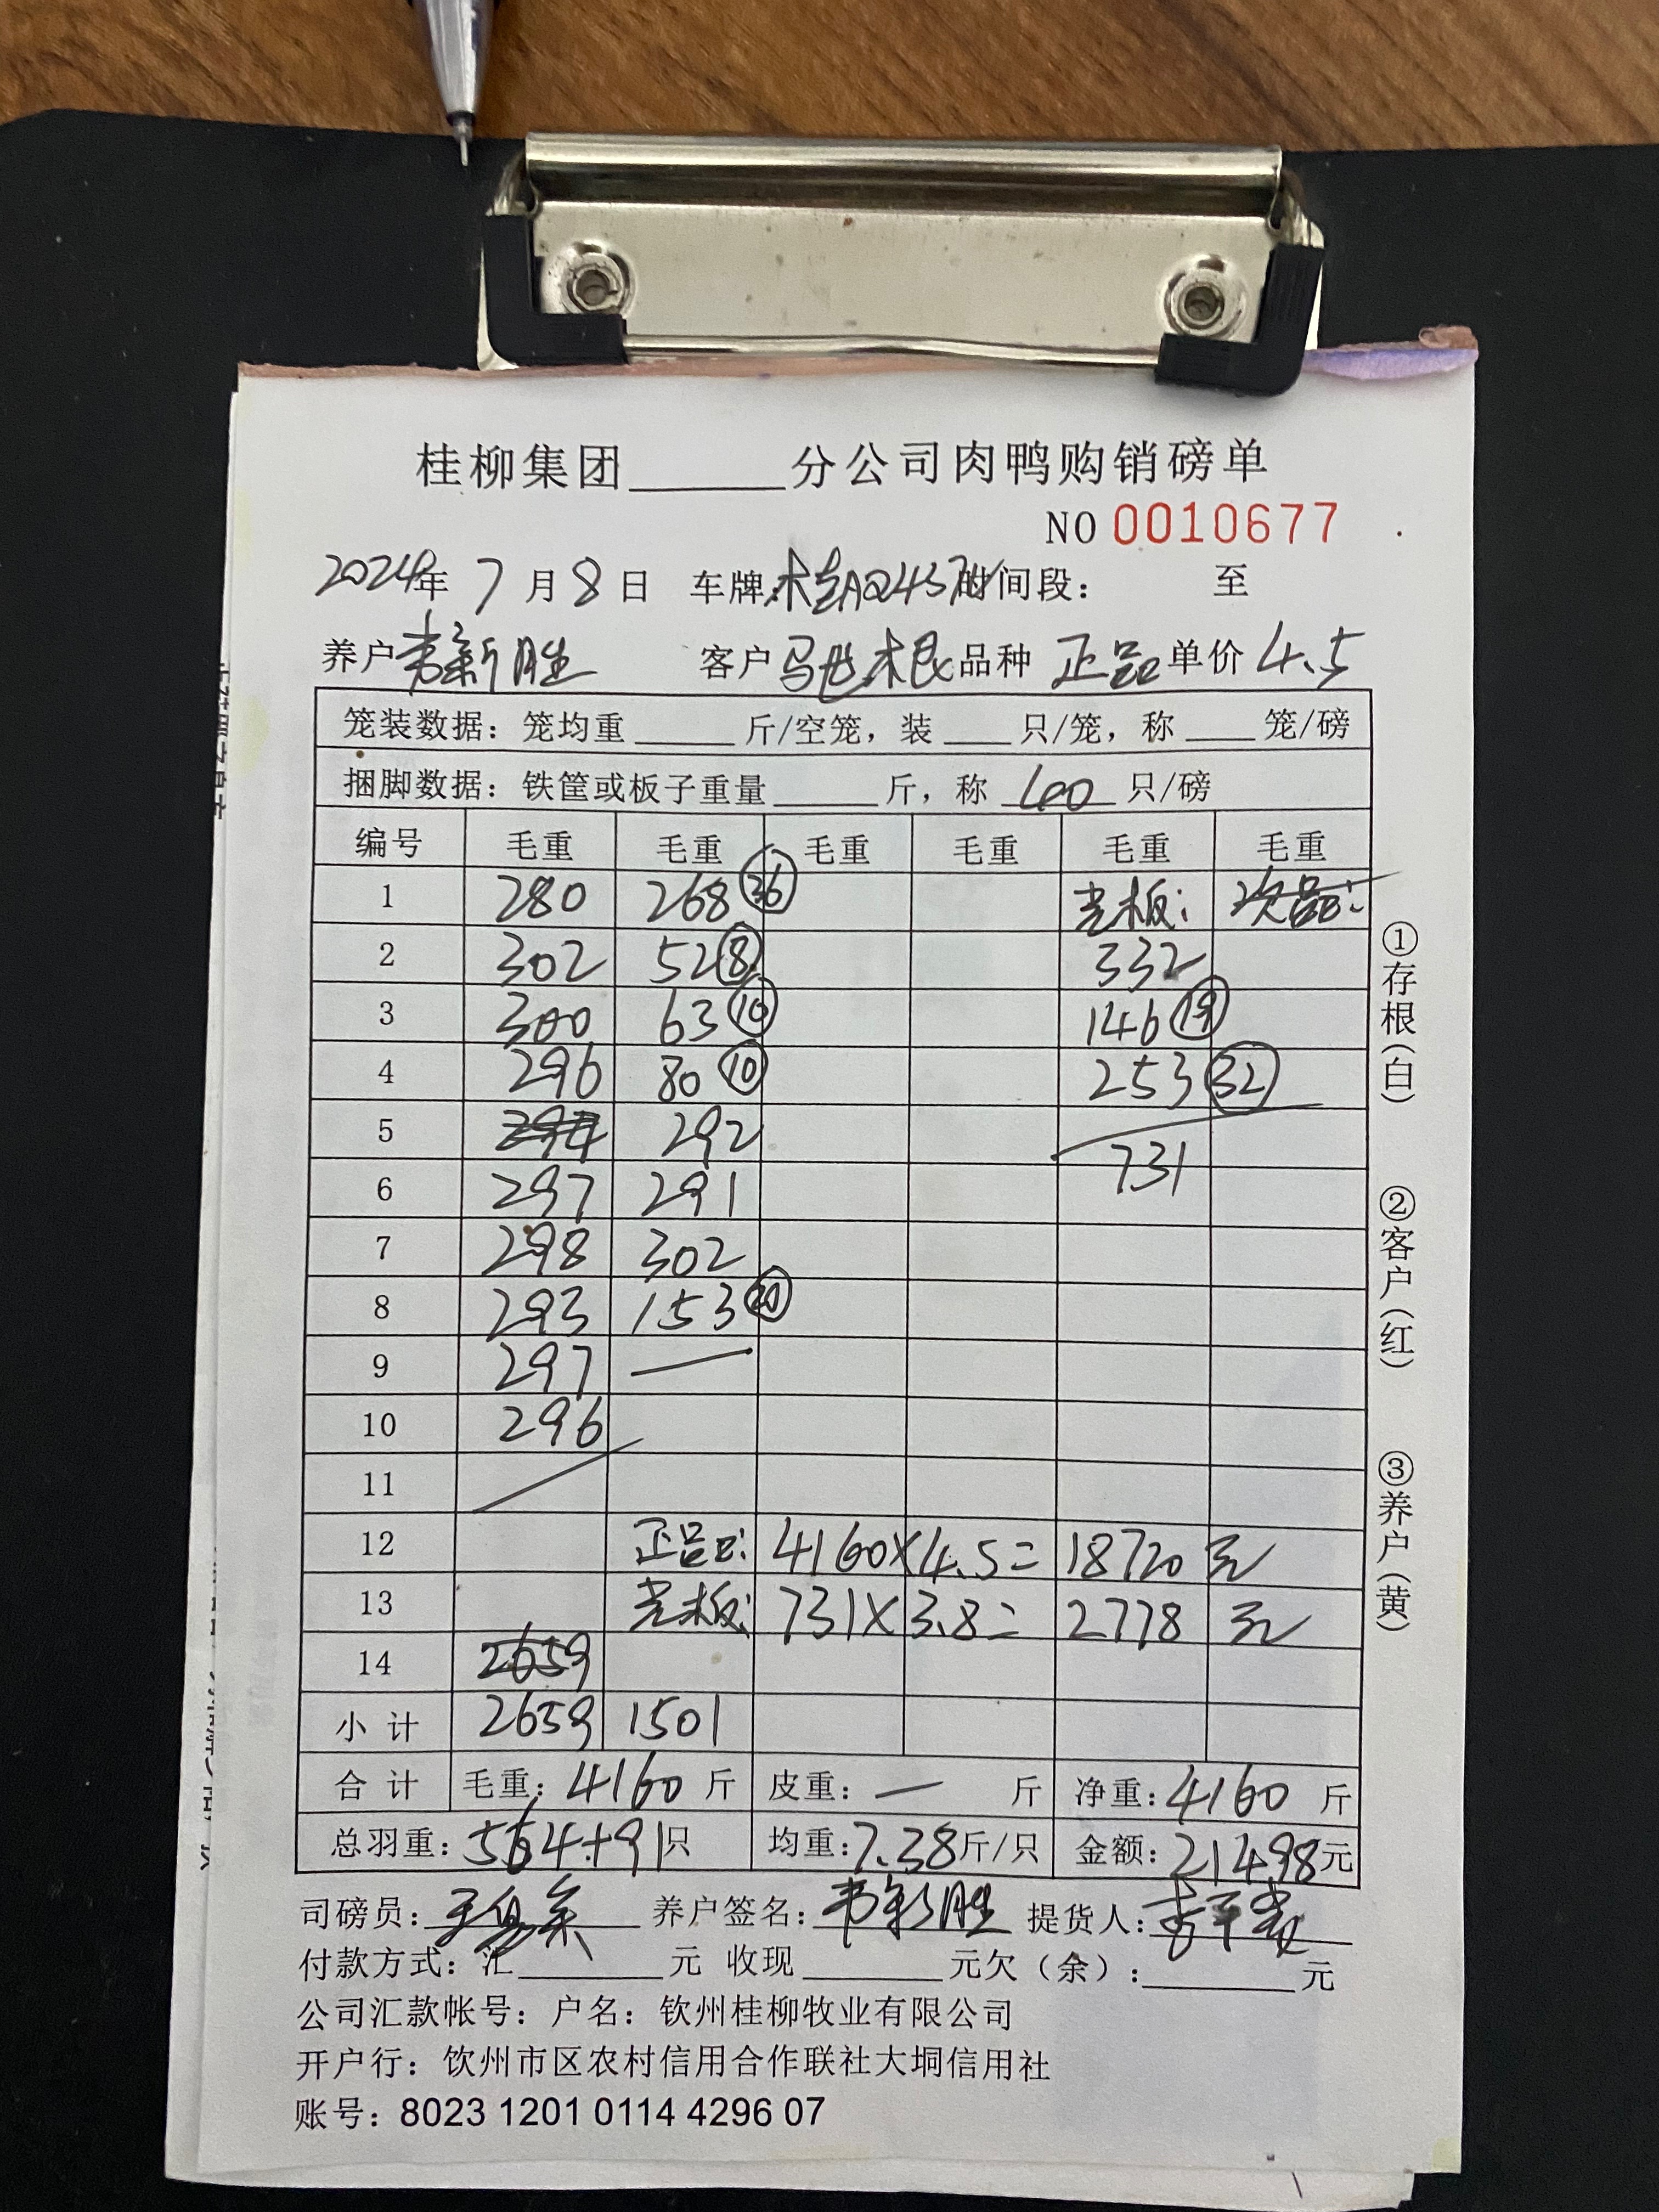 桂柳集团______分公司肉鸭购销磅单
NO 0010677
2024年 7 月 8 日 车牌:桂AQ2437 时间段: 至
养户 韦新胜 客户 马世木根 品种 正品 单价 4.5
笼装数据: 笼均重 _____ 斤/空笼, 装 ___ 只/笼, 称 ___ 笼/磅
捆脚数据: 铁筐或板子重量 _____ 斤, 称 40 只/磅
编号 毛重 毛重 毛重 毛重 毛重 毛重
1 280 268 36 光板: 次品:
2 302 52 8 332
3 300 63 10 146 19
4 296 80 10 253 32
5 294 292
6 297 291 731
7 298 302
8 293 153 20
9 297 —
10 296
11
12 正品: 4160×4.5= 18720 元
13 光板: 731×3.8= 2778 元
14 2659
小计 2659 1501
合计 毛重: 4160 斤 皮重: — 斤 净重: 4160 斤
总羽重: 564+91 只 均重: 7.38 斤/只 金额: 21498 元
司磅员: 养户签名: 韦新胜 提货人:
付款方式: 汇______元 收现______元 欠(余):______元
公司汇款帐号: 户名: 钦州桂柳牧业有限公司
开户行: 钦州市区农村信用合作联社大垌信用社
账号: 8023 1201 0114 4296 07
①存根(白) ②客户(红) ③养户(黄)